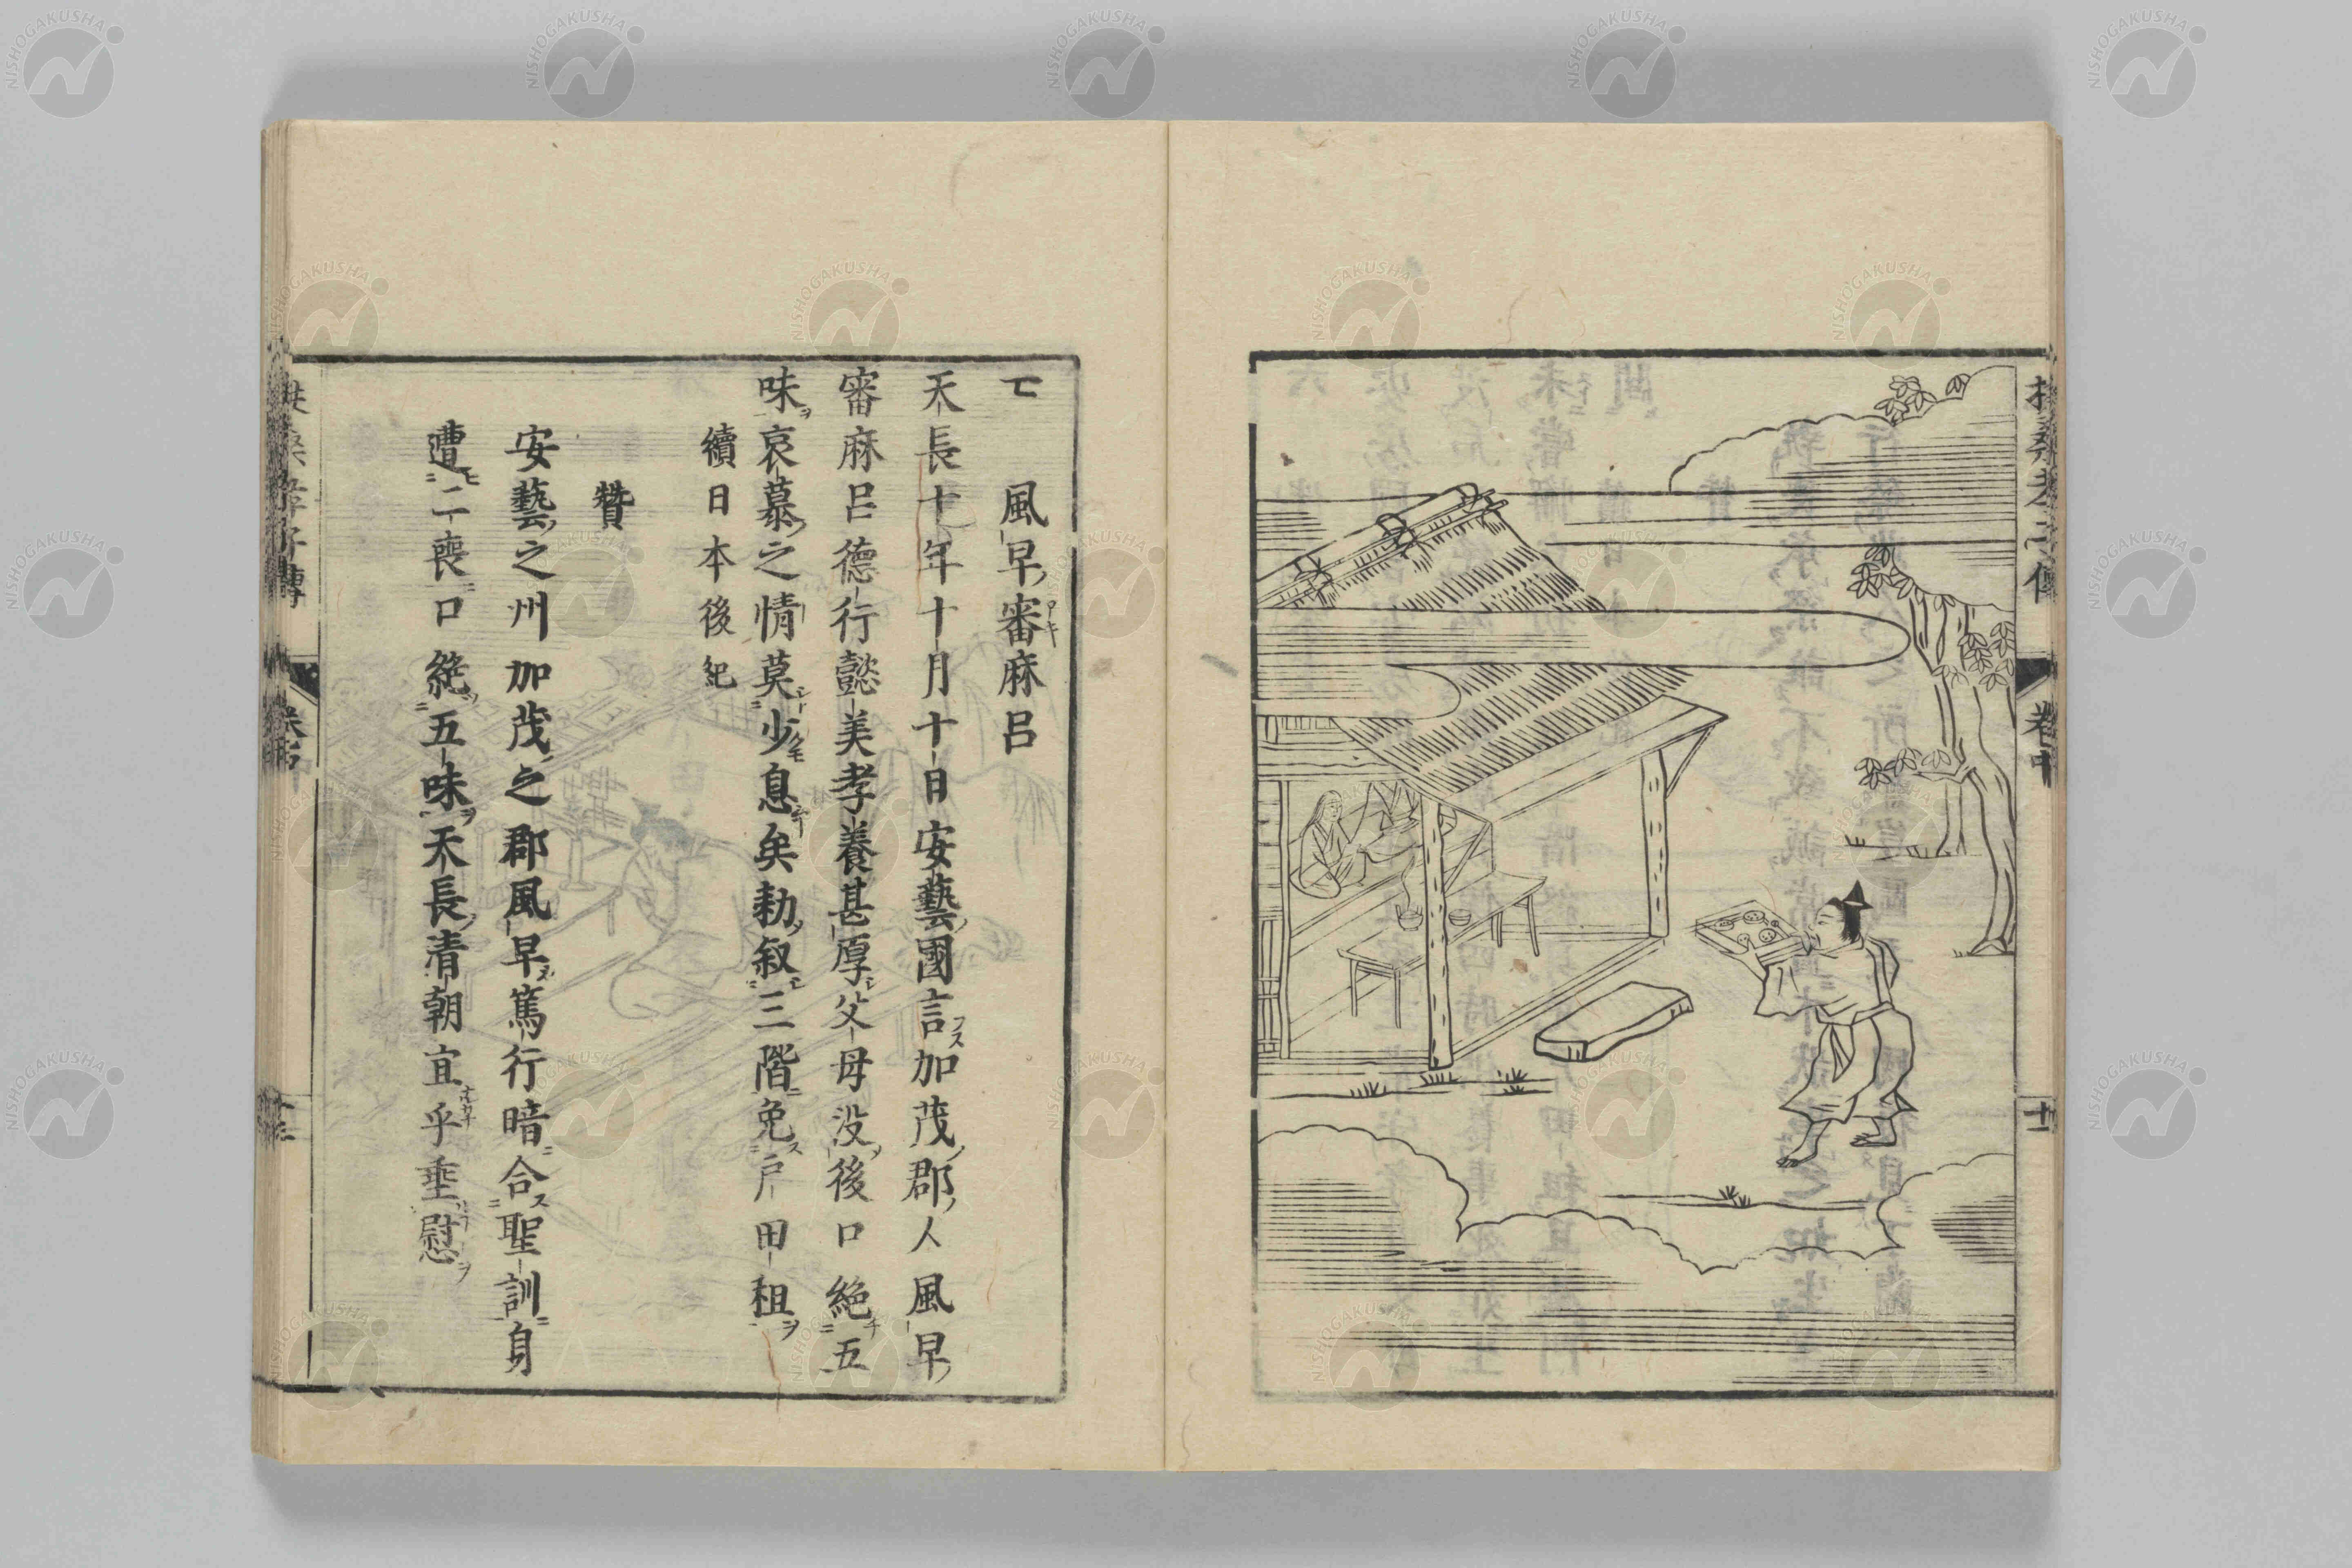 扶桑孝子傳 卷中 十一
風早審麻呂
天長十年十月十日安藝國言加茂郡人風早
審麻呂德行懿美孝養甚厚父母没後口絶五
味哀慕之情莫少息矣勅叙三階免戸田租
續日本後紀
贊
安藝之州加茂之郡風早篤行暗合聖訓身
遭二喪口絶五味天長清朝宜乎垂慰
扶桑孝子傳 卷中
NISHOGAKUSHA